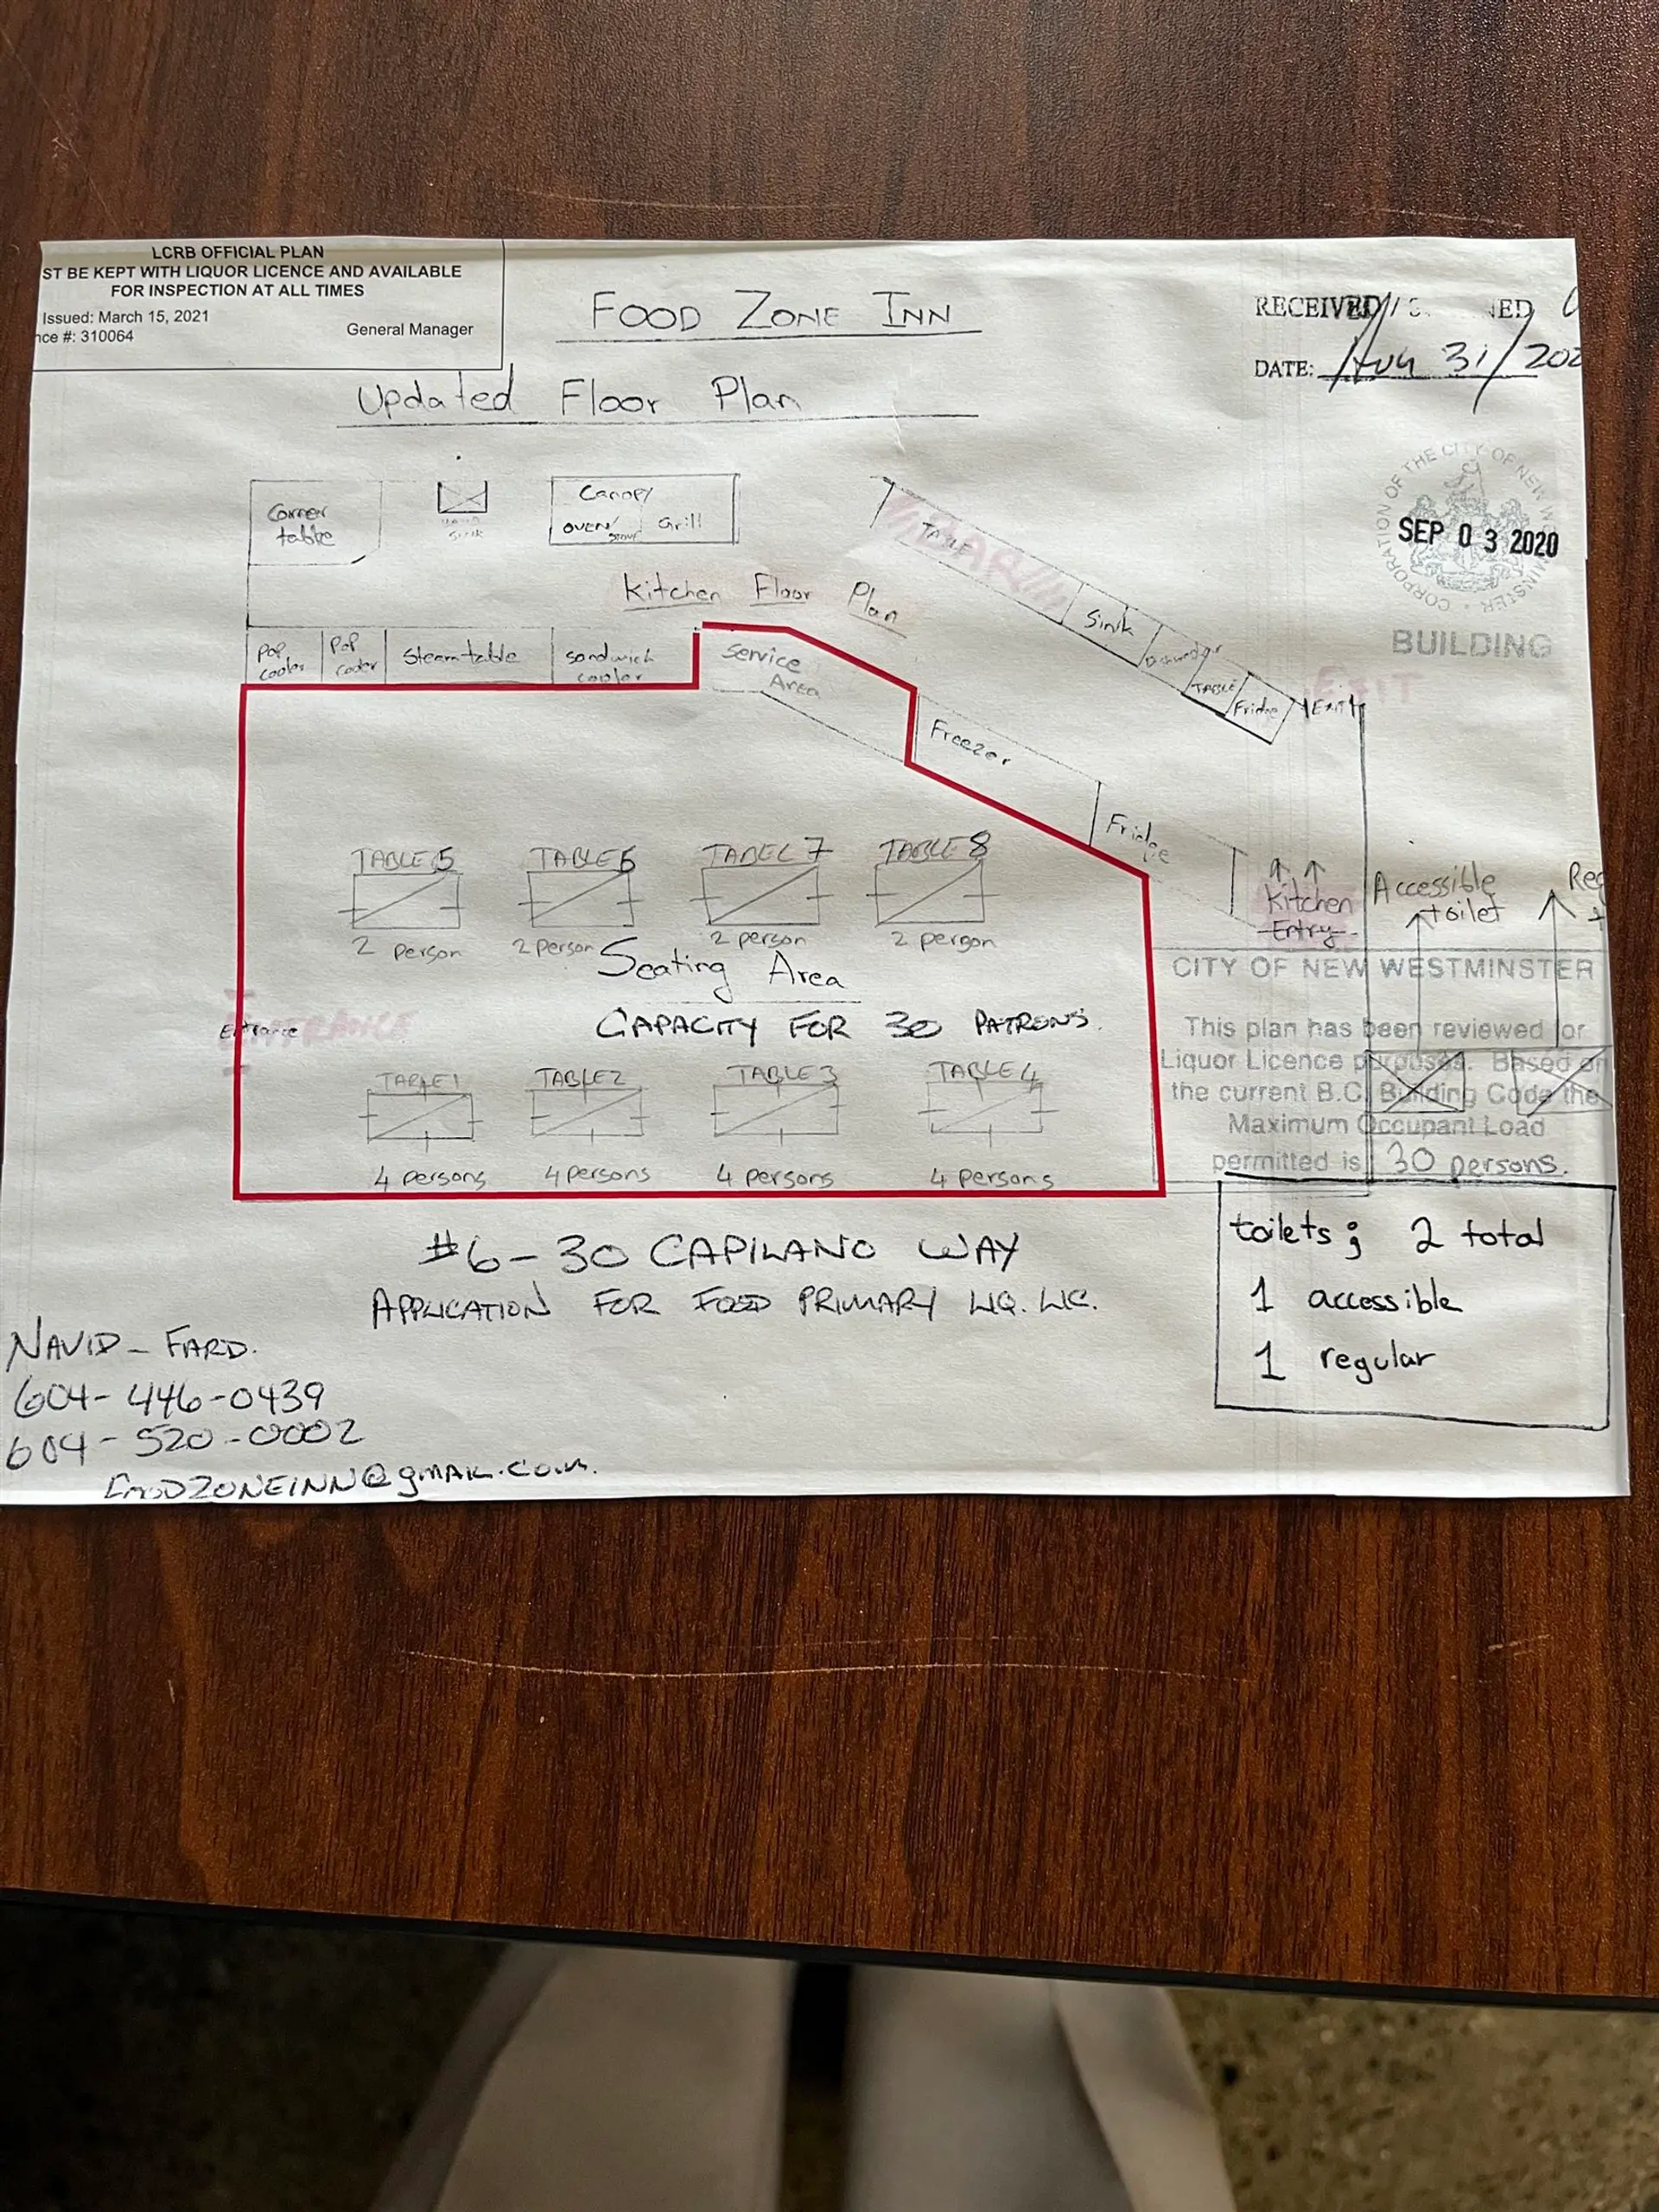 LCRB OFFICIAL PLAN
ST BE KEPT WITH LIQUOR LICENCE AND AVAILABLE
FOR INSPECTION AT ALL TIMES
Issued: March 15, 2021
nce #: 310064
General Manager
FOOD ZONE INN
Updated Floor Plan
RECEIVED /
DATE: Aug 31/202
CORPORATION OF THE CITY OF NEW WESTMINSTER
SEP 03 2020
BUILDING
Corner
table
sink
Canopy
OVEN/
STOVE
Grill
TABLE
BAR
Sink
TABLE
Fridge
EXIT
EXIT
Kitchen Floor Plan
Pop
cooler
Pop
cooler
Steam table
sandwich
cooler
Service
Area
Freezer
Fridge
Kitchen
Entry
Accessible
toilet
Reg
TABLE 5
TABLE 6
TABEL 7
TABLE 8
2 person
2 person
2 person
2 person
Seating Area
CAPACITY FOR 30 PATRONS.
Entrance
ENTRANCE
TABLE 1
TABLE 2
TABLE 3
TABLE 4
4 persons
4 persons
4 persons
4 persons
CITY OF NEW WESTMINSTER
This plan has been reviewed for
Liquor Licence purposes. Based on
the current B.C. Building Code the
Maximum Occupant Load
permitted is 30 persons.
toilets; 2 total
1 accessible
1 regular
#6-30 CAPILANO WAY
APPLICATION FOR FOOD PRIMARY LIQ. LIC.
NAVID - FARD.
604-446-0439
604-520-0002
FOODZONEINN@gmail.com.